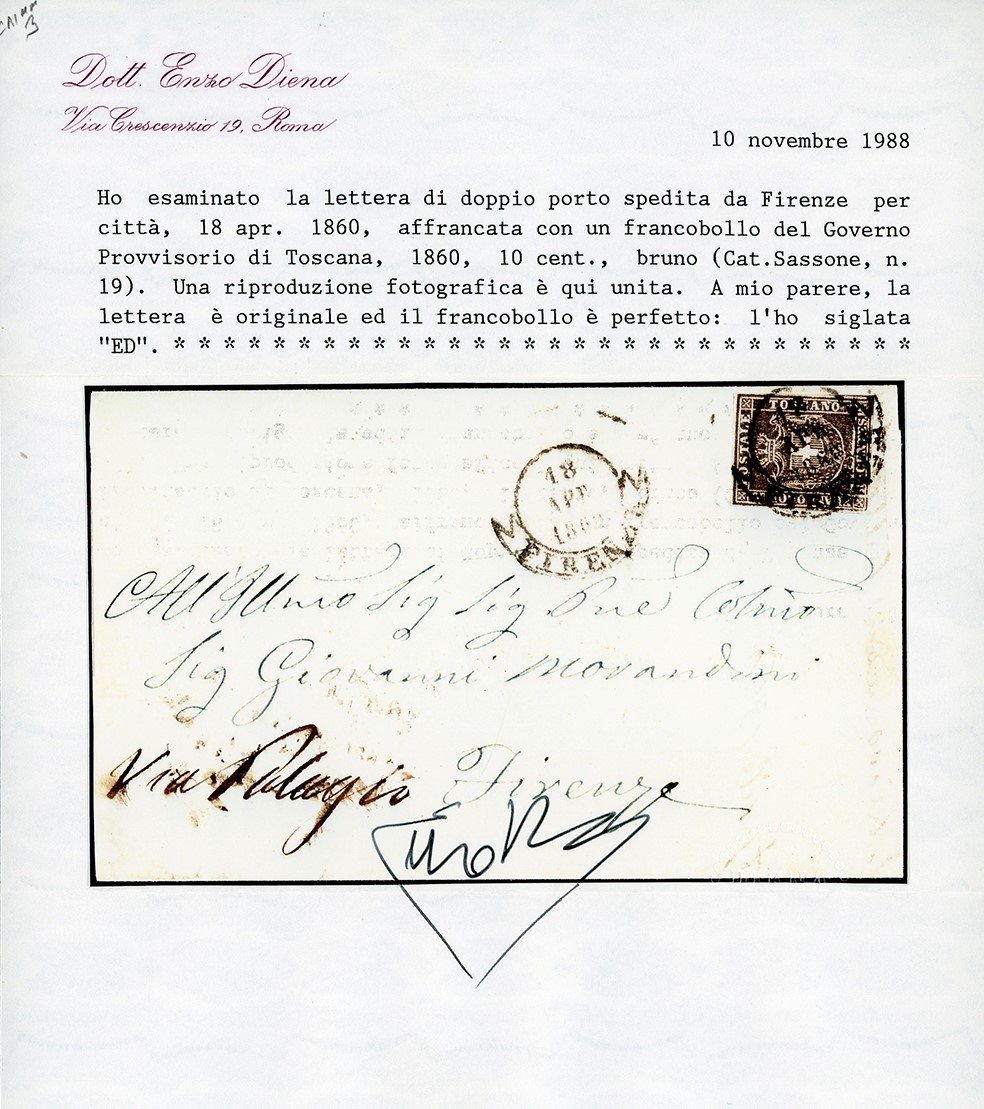 Dott. Enzo Diena
Via Crescenzio 19, Roma
10 novembre 1988
Ho esaminato la lettera di doppio porto spedita da Firenze per
città, 18 apr. 1860, affrancata con un francobollo del Governo
Provvisorio di Toscana, 1860, 10 cent., bruno (Cat.Sassone, n.
19). Una riproduzione fotografica è qui unita. A mio parere, la
lettera è originale ed il francobollo è perfetto: l'ho siglata
"ED". * * * * * * * * * * * * * * * * * * * * * * * * * * * * * *
18
APR
1860
FIRENZE
All'Illmo Sig Sig Pne Colmo
Sig Giovanni Morandini
Via Palagio Firenze